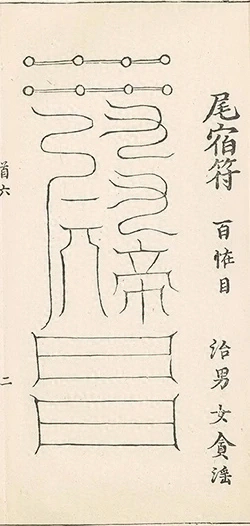 尾宿符 百怪目 治男女貪滛
帝
首六
二